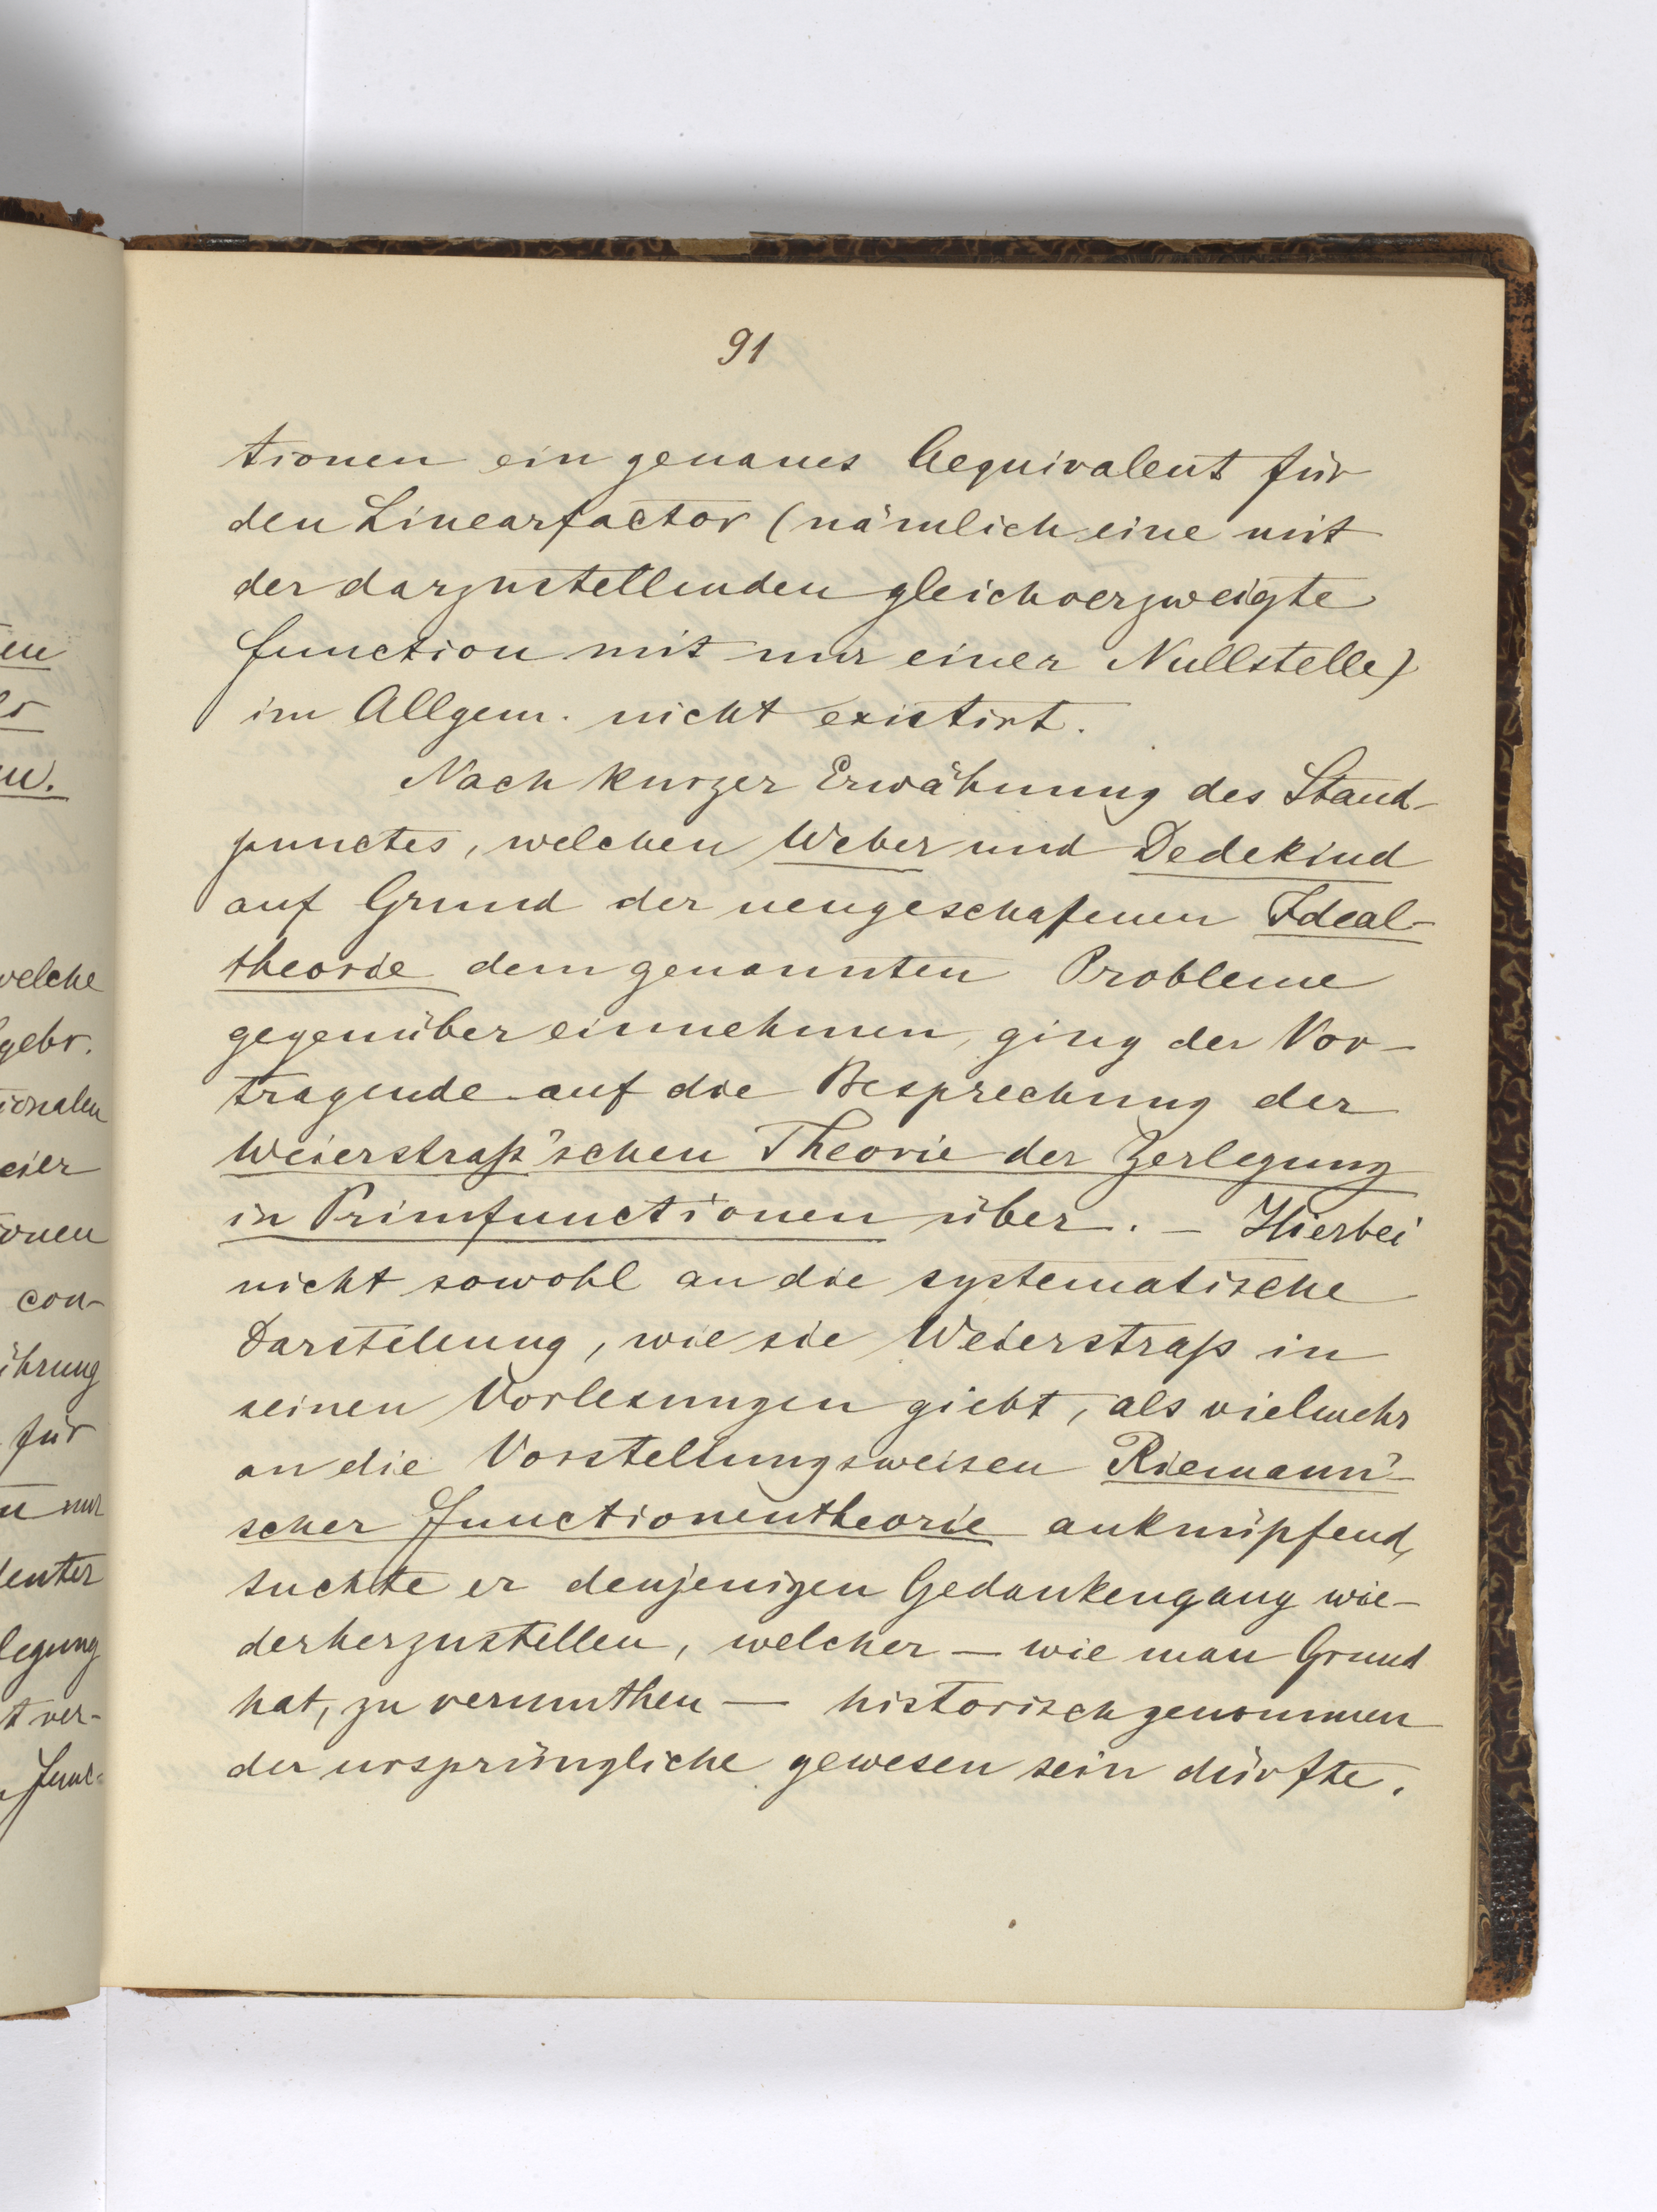 91
tionen ein genaues Aequivalent für
den Linearfactor (nämlich eine mit
der darzustellenden gleichverzweigte
Function mit nur einer Nullstelle)
im Allgem. nicht existirt.
Nach kurzer Erwähnung des Stand-
punctes, welchen Weber und Dedekind
auf Grund der neugeschafenen Ideal-
theorie dem genannten Probleme
gegenüber einnehmen, ging der Vor-
tragende auf die Besprechung der
Weierstraß'schen Theorie der Zerlegung
in Primfunctionen über. – Hierbei
nicht sowohl an die systematische
Darstellung, wie sie Weierstraß in
seinen Vorlesungen giebt, als vielmehr
an die Vorstellungsweisen Riemann'-
scher Functionentheorie anknüpfend,
suchte er denjenigen Gedankengang wie-
derherzustellen, welcher — wie man Grund
hat, zu vermuthen — historisch genommen
der ursprüngliche gewesen sein dürfte.
welche
gebr.
ionalen
con-
ührung
für
nur
legung
ver-
Func-